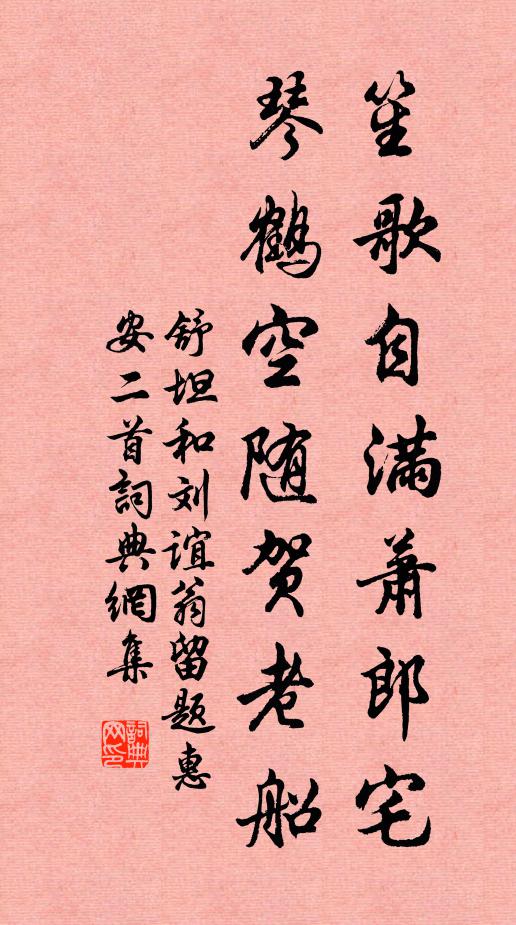 笙歌自满萧郎宅
琴鹤空随贺老船
舒坦和刘谊翁留题惠
安二首詞典網集
詞典
网印